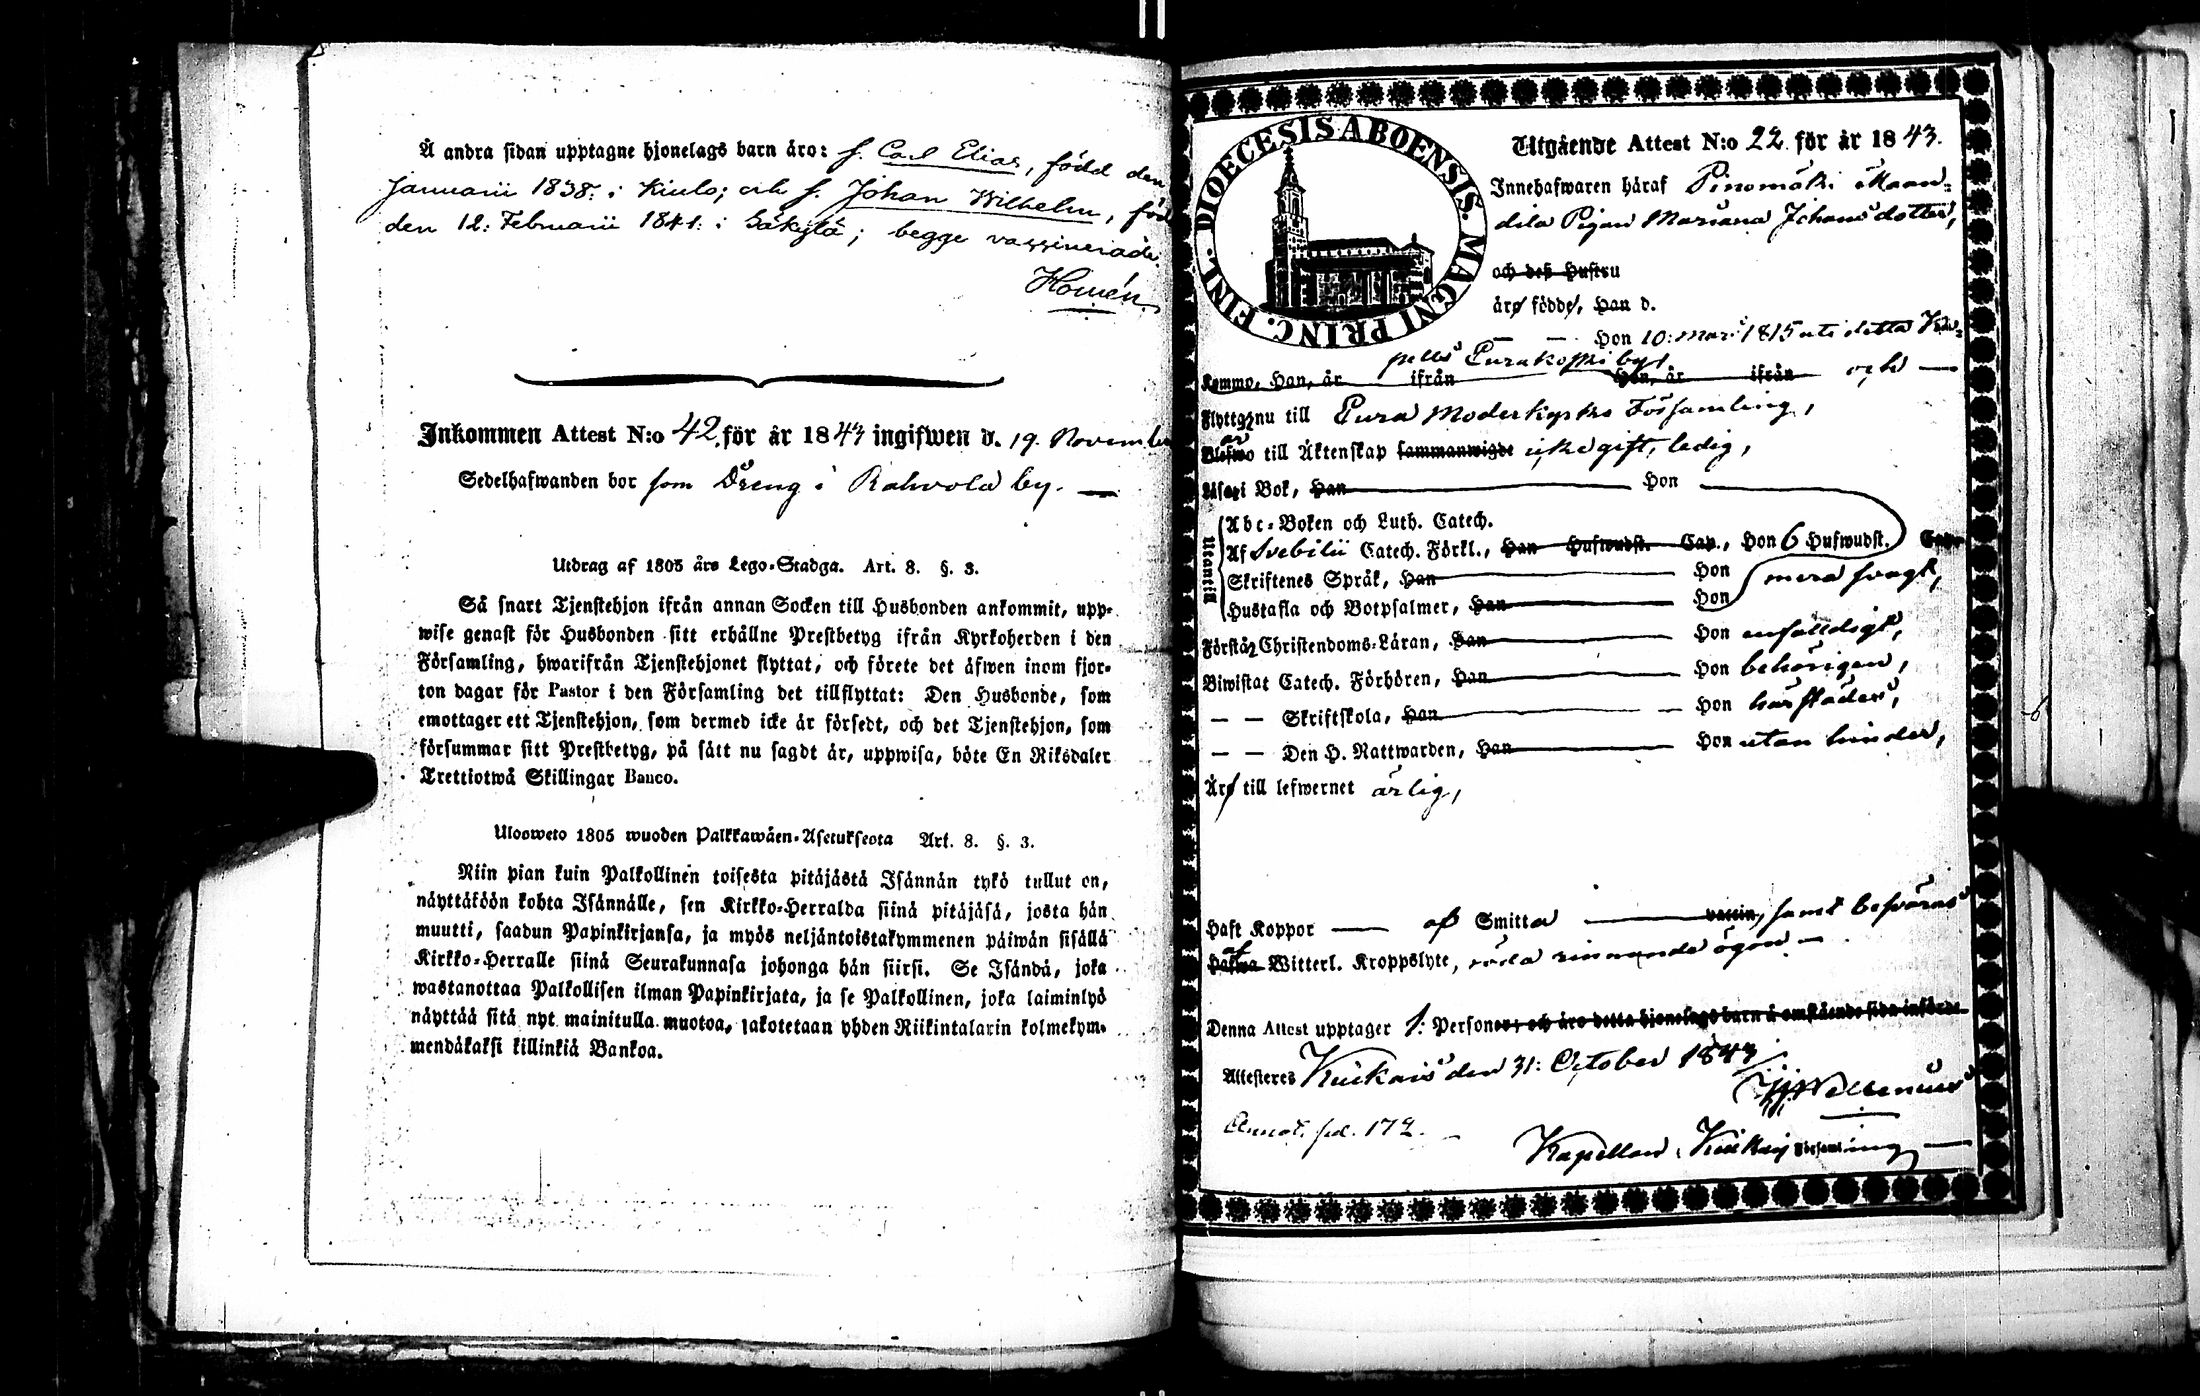 Å andra sidan upptagne hjonelags barn äro: s. Carl Elias, född den
Januarii 1838. i Kiulo; och s. Johan Wilhelm, föd
den 12: Februarii 1841. i Säkylä; begge vaccinerade.
Homén
Inkommen Attest N:o 42. för år 1843 ingifwen d. 19. November
Sedelhafwanden bor som Dreng i Rahvola by.
Utdrag af 1805 års Lego-Stadga. Art. 8. §. 3.
Så snart Tjenstehjon ifrån annan Socken till Husbonden ankommit, upp-
wise genast för Husbonden sitt erhållne Prestbetyg ifrån Kyrkoherden i den
Församling, hwarifrån Tjenstehjonet flyttat, och förete det äfwen inom fjor-
ton dagar för Pastor i den Församling det tillflyttat: Den Husbonde, som
emottager ett Tjenstehjon, som dermed icke är försedt, och det Tjenstehjon, som
försummar sitt Prestbetyg, på sätt nu sagdt är, uppwisa, böte En Riksdaler
Trettiotwå Skillingar Banco.
Ulosweto 1805 wuoden Palkkawäen-Asetuksesta Art. 8. §. 3.
Niin pian kuin Palkollinen toisesta pitäjästä Isännän tykö tullut on,
näyttäköön kohta Isännälle, sen Kirkko-Herralda siinä pitäjäsä, josta hän
muutti, saadun Papinkirjansa, ja myös neljäntoistakymmenen päiwän sisällä
Kirkko-Herralle siinä Seurakunnasa johonga hän siirsi. Se Isändä, joka
wastanottaa Palkollisen ilman Papinkirjata, ja se Palkollinen, joka laiminlyö
näyttää sitä nyt mainitulla muotoa, sakotetaan yhden Riikintalarin kolmekym-
mendäkaksi killinkiä Bankoa.
DIOECESIS ABOENSIS. MAGNI PRINC. FINL.
Utgående Attest N:o 22. för år 1843.
Innehafwaren häraf Pinomäki
Pigan Mariana Johansdotter,
och deß Hustru
äro födde, Han d.
Hon 10: Mar: 1815 uti detta Ka-
pells Eurakoski by,
Kommo, Han, år ifrån Hon, år ifrån och
Flyttar nu till Eura Moderkyrko Församling,
är
Blefwo till Äktenskap sammanwigde icke gift, ledig,
Läser i Bok, Han Hon
Utantill
Abc-Boken och Luth. Catech.
Af Svebilii Catech. Förkl., Han Hufwudst. Cap., Hon 6 Hufwudst. Cap.
Skriftenes Språk, Han Hon mera svagt,
Hustafla och Botpsalmer, Han Hon
Förstår Christendoms-Läran, Han Hon enfaldigt,
Biwistat Catech. Förhören, Han Hon behörigen,
— — Skriftskola, Han — Hon härstädes,
— — Den H. Nattwarden, Han Hon utan hinder,
Äro till lefwernet ärlig,
Haft Koppor — af Smitta — vaccin, samt besväras
af
Hafwa Witterl. Kroppslyte, röda rinnande ögon —
Denna Attest upptager 1: Personer: och äro detta hjonelags barn å omstående sida införde
Attesteres Kiukais den 31: October 1843
Annot. fol. 172.
Kapellan i Kiukais Församling